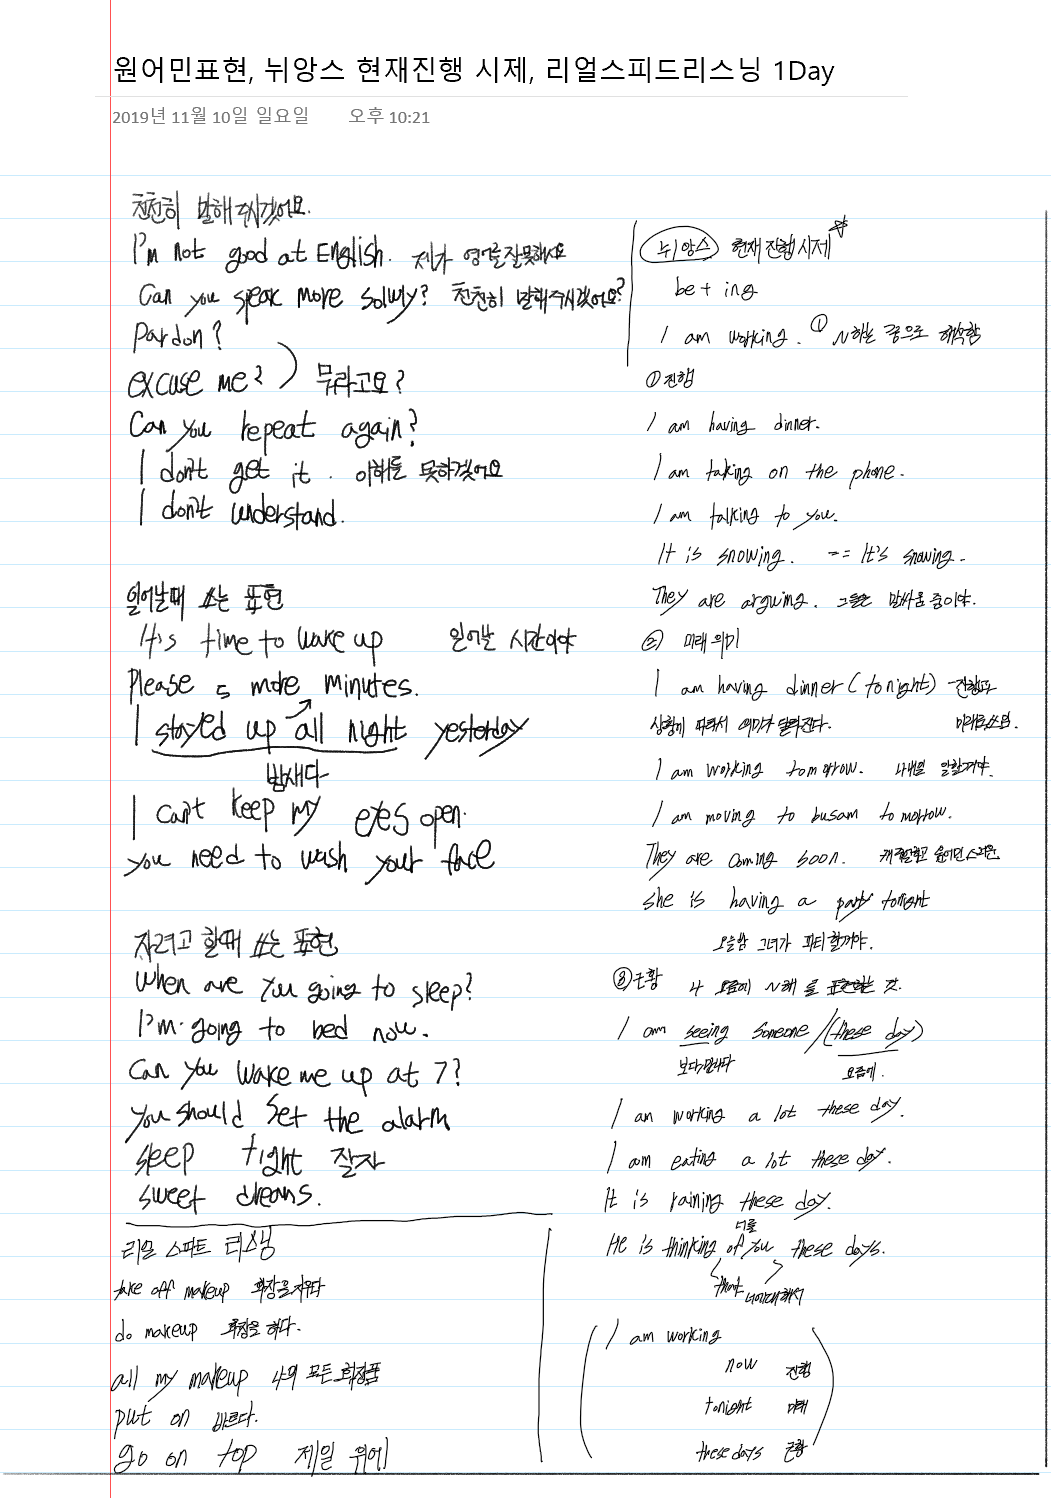 원어민표현, 뉘앙스 현재진행 시제, 리얼스피드리스닝 1Day
2019년 11월 10일 일요일 오후 10:21
천천히 말해주시겠어요.
I'm not good at English. 제가 영어를 잘못해서요
Can you speak more solwly? 천천히 말해주시겠어요?
Pardon?
excuse me? ) 뭐라고요?
Can you repeat again?
I don't get it. 이해를 못하겠어요
I don't understand.
일어날때 쓰는 표현
It's time to wake up 일어날 시간이야
Please 5 more minutes.
I stayed up all night yesterday
밤새다
I can't keep my eyes open.
you need to wash your face
자려고 할때 쓰는 표현
When are you going to sleep?
I'm going to bed now.
Can you wake me up at 7?
you should set the alarm
sleep tight 잘자
sweet dreams.
리얼 스피드
take off makeup 화장을 지우다
do makeup 화장을 하다.
all my makeup 나의 모든 화장품
put on 바르다.
go on top 제일 위에
뉘앙스 현재진행시제
be + ing
I am working. ① ~하는 중으로 해석함
① 진행
I am having dinner.
I am taking on the phone.
I am talking to you.
It is snowing. == It's snowing.
They are arguing. 그들은 말싸움 중이야.
② 미래 의미
I am having dinner (tonight) 진행과
상황에 따라서 의미가 달라진다. 미래로쓰임.
I am working tomorrow. 나 내일 일할꺼야.
I am moving to busan tomorrow.
They are coming soon.
she is having a party tonight
오늘밤 그녀가 파티할꺼야.
③ 근황 나 요즘에 ~해 를 표현하는 것.
I am seeing someone / (these day)
보다, 만나다 요즘에.
I am working a lot these day.
I am eating a lot these day.
It is raining these day.
너를
He is thinking of you these days.
너에대해서
( I am working
now 진행
tonight 미래
these days 근황 )